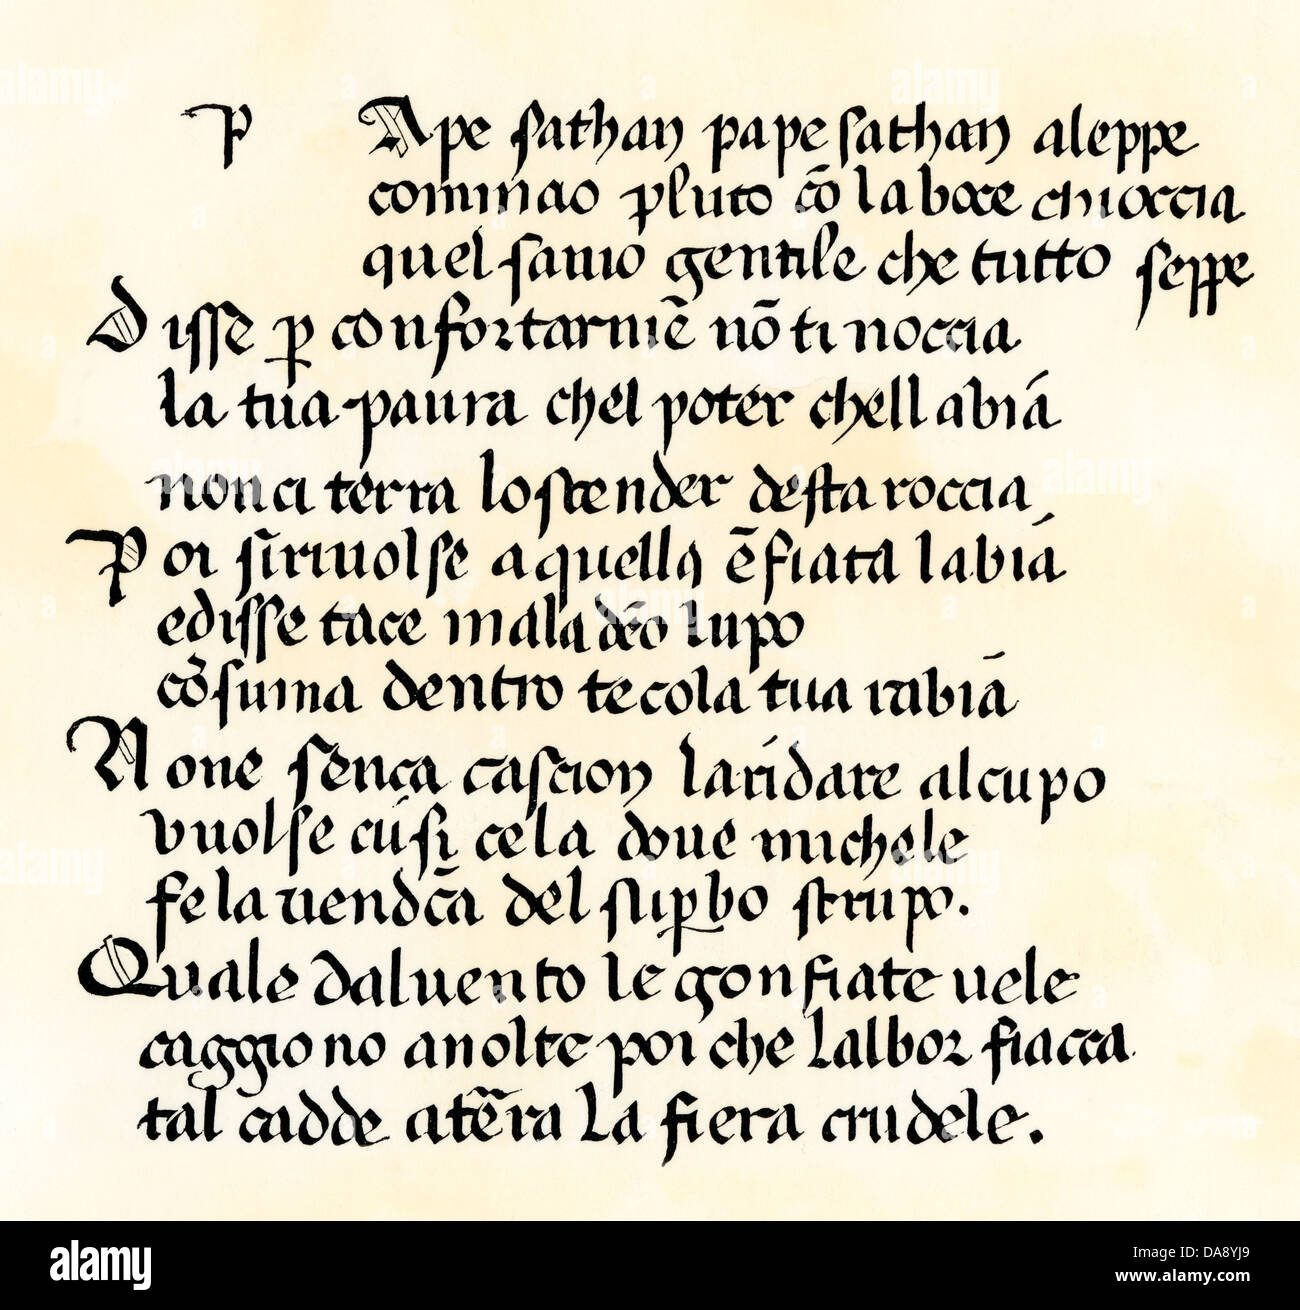 P Ape sathan pape sathan aleppe
cominao pluto cõ la boce chioccia
quel sauio gentile che tutto seppe
Disse p confortarmē nō ti noccia
la tua paura chel poter chell abiā
non ci terra lo scender desta roccia
Poi si riuolse a quella ēfiata labiā
e disse tace maladeõ lupo
cõsuma dentro te cola tua rabiā
None senca cascion lariдare al cupo
vuolse cusi ce la doue michele
fe la uendcã del supbo strupo.
Quale dal uento le gonfiate uele
caggiono anolte poi che lalbor fiacca
tal cadde a tēra la fiera crudele.
alamy
DA8YJ9
www.alamy.com